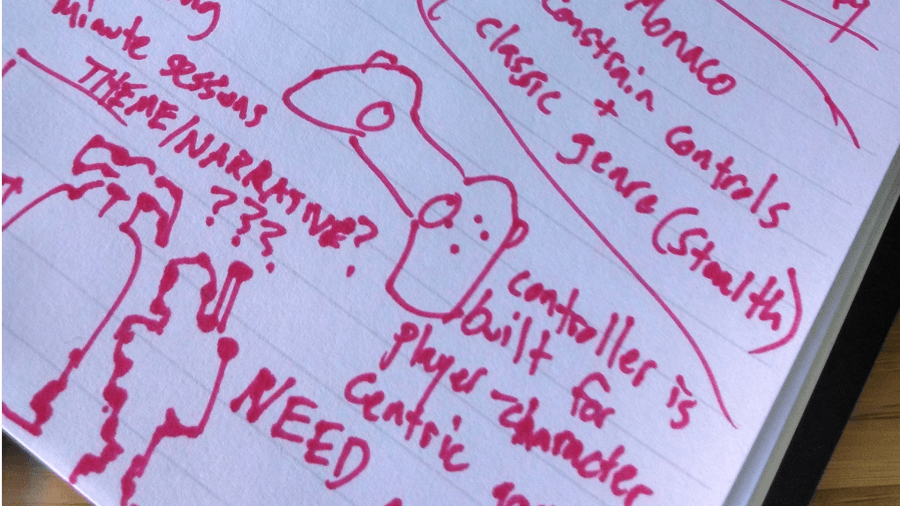 minute sessions
THEME/NARRATIVE?
???
NEED
Monaco
Constrain controls
+
classic genre (stealth)
controller is
built for
player-character
centric